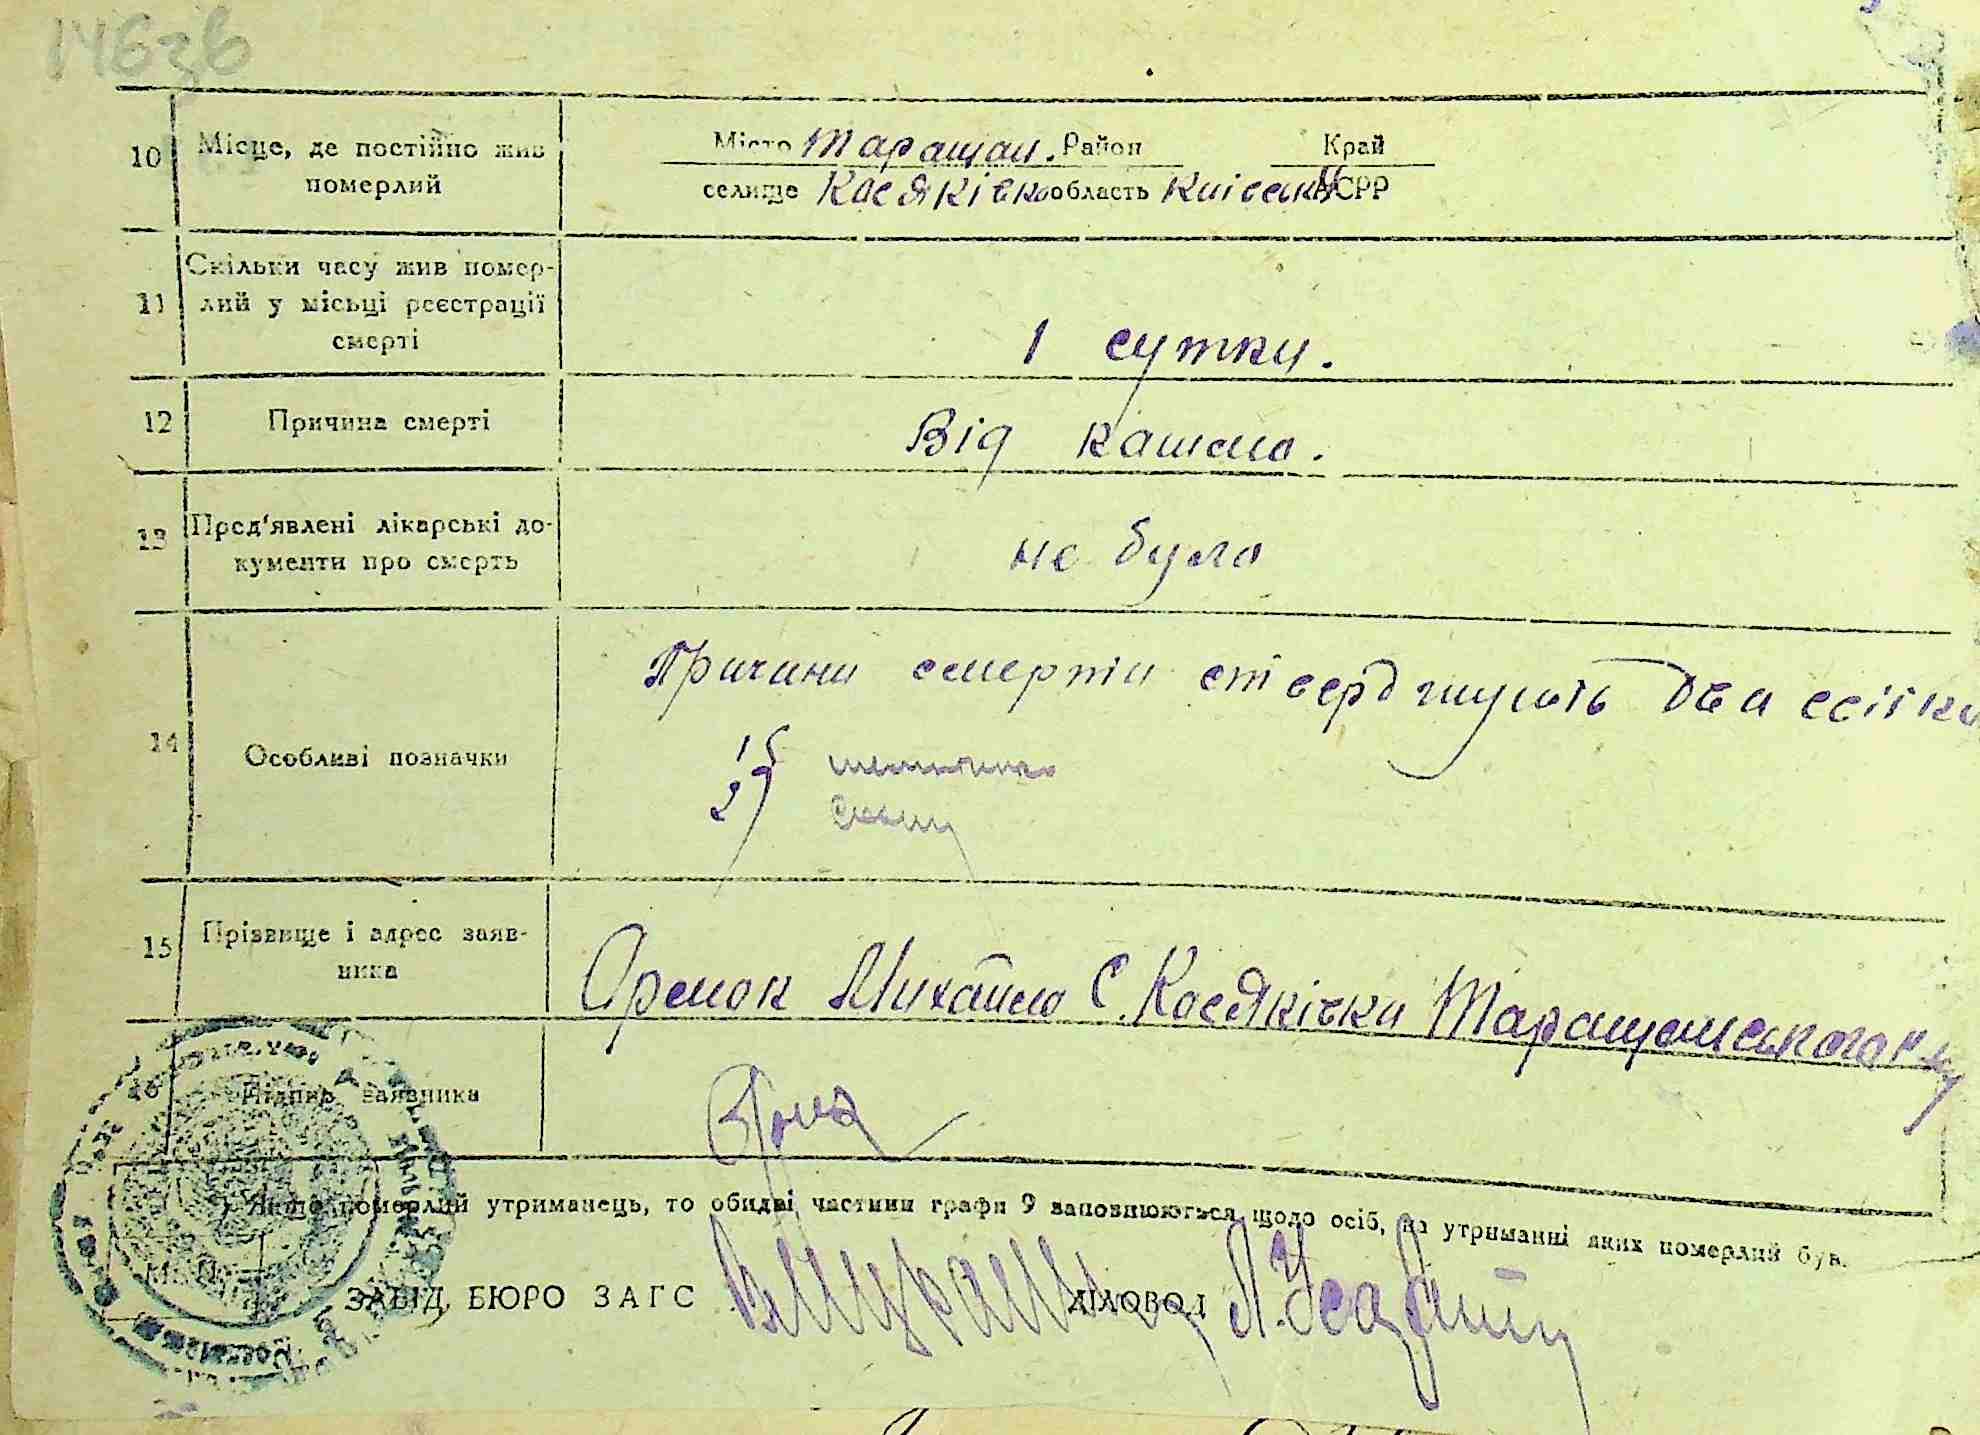 146зв
10 Місце, де постійно жив Місто Таращан. Район Край
померлий селище Косяківка область Київськ АСРР
11 Скільки часу жив помер-
лий у місьці реєстрації
смерті 1 сутки.
12 Причина смерті Від кашлю.
13 Пред'явлені лікарські до- не було
кументи про смерть
Причини смерти стверджують два свідки
14 Особливі позначки 1)
2)
15 Прізвище і адрес заяв-
ника Михайло С. Косяківки Таращанського р-ну
16 Підпис заявника
Якщо померлий утриманець, то обидві частини графи 9 заповнюються щодо осіб, на утриманні яких померлий був.
М. П.
ЗАВІД. БЮРО ЗАГС ДІЛОВОД